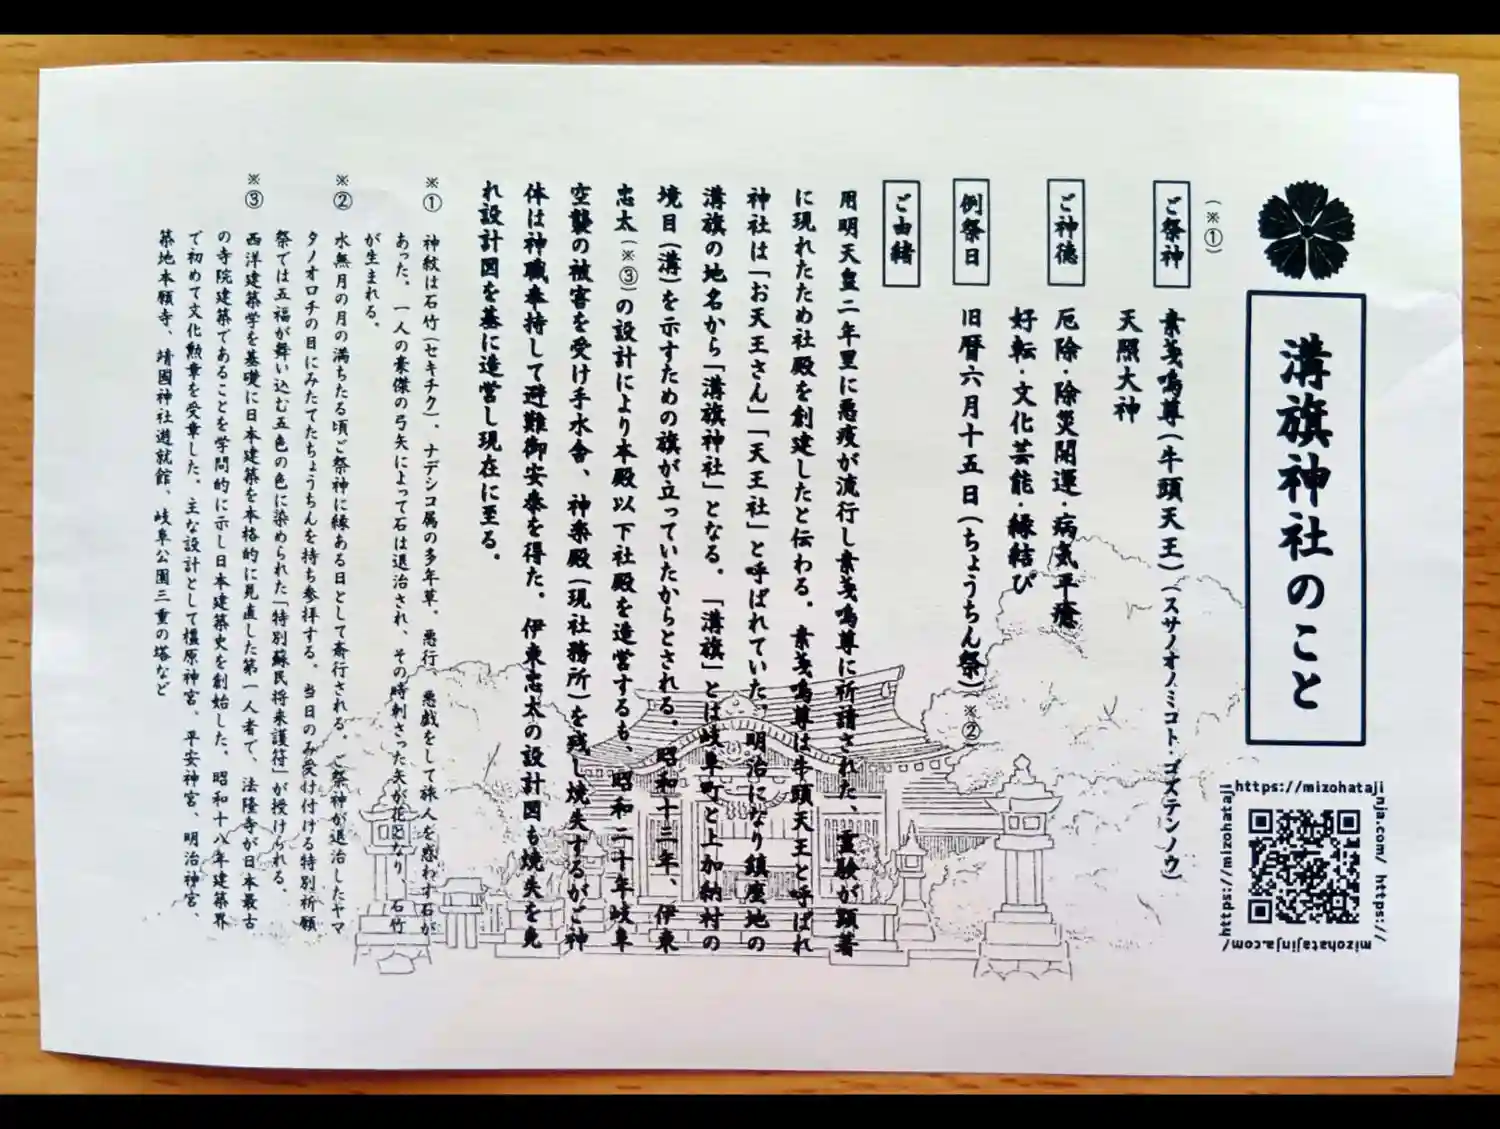 溝旗神社のこと
https://mizohatajinja.com/ https://mizohatajinja.com/ https://mizohataji
(※①)
ご祭神
素戔嗚尊(牛頭天王)(スサノオノミコト・ゴズテンノウ)
天照大神
ご神徳
厄除・除災開運・病気平癒
好転・文化芸能・縁結び
例祭日
旧暦六月十五日(ちょうちん祭)(※②)
ご由緒
用明天皇二年里に悪疫が流行し素戔嗚尊に祈請された、霊験が顕著
に現れたため社殿を創建したと伝わる。素戔嗚尊は牛頭天王と呼ばれ
神社は「お天王さん」「天王社」と呼ばれていた。明治になり鎮座地の
溝旗の地名から「溝旗神社」となる。「溝旗」とは岐阜町と上加納村の
境目(溝)を示すための旗が立っていたからとされる。昭和十三年、伊東
忠太(※③)の設計により本殿以下社殿を造営するも、昭和二十年岐阜
空襲の被害を受け手水舎、神楽殿(現社務所)を残し焼失するがご神
体は神職奉持して避難御安泰を得た。伊東忠太の設計図も焼失を免
れ設計図を基に造営し現在に至る。
※① 神紋は石竹(セキチク)、ナデシコ属の多年草。悪行、悪戯をして旅人を惑わす石が
あった。一人の豪傑の弓矢によって石は退治され、その時刺さった矢が花となり 石竹
が生まれる。
※② 水無月の月の満ちたる頃ご祭神に縁ある日として斎行される。ご祭神が退治したヤマ
タノオロチの目にみたてたちょうちんを持ち参拝する。当日のみ受け付ける特別祈願
祭では五福が舞い込む五色の色に染められた「特別蘇民将来護符」が授けられる。
※③ 西洋建築学を基礎に日本建築を本格的に見直した第一人者で、法隆寺が日本最古
の寺院建築であることを学問的に示し日本建築史を創始した。昭和十八年建築界
で初めて文化勲章を受章した。主な設計として橿原神宮、平安神宮、明治神宮、
築地本願寺、靖國神社遊就館、岐阜公園三重の塔など